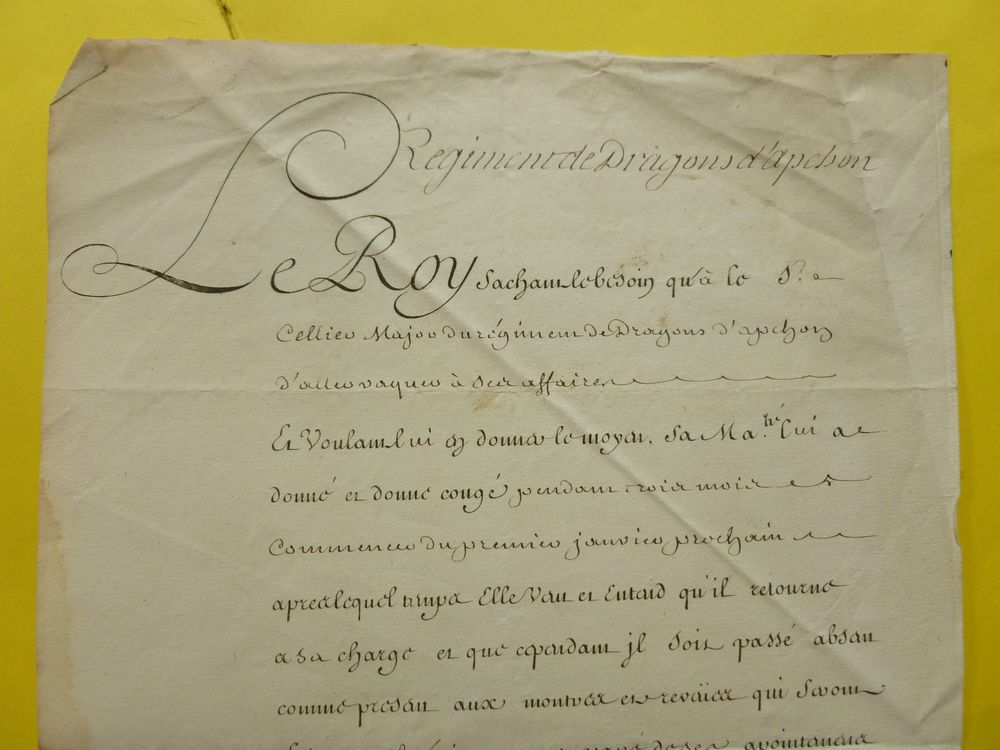 Regiment de Dragons d'apchon
Le Roy sachant le besoin qu'à le Sr.
Cellier Major du régiment de Dragons d'apchon
d'aller vaquer à ses affaires
Et Voulant lui en donner le moyen, Sa Ma.té Lui a
donné et donne congé pendant trois mois
Commencer du premier janvier prochain
apres lequel temps Elle Veut et Entend qu'il retourne
a sa charge et que cependant jl soit passé absent
comme present aux montres et reveües qui seront
apointemens